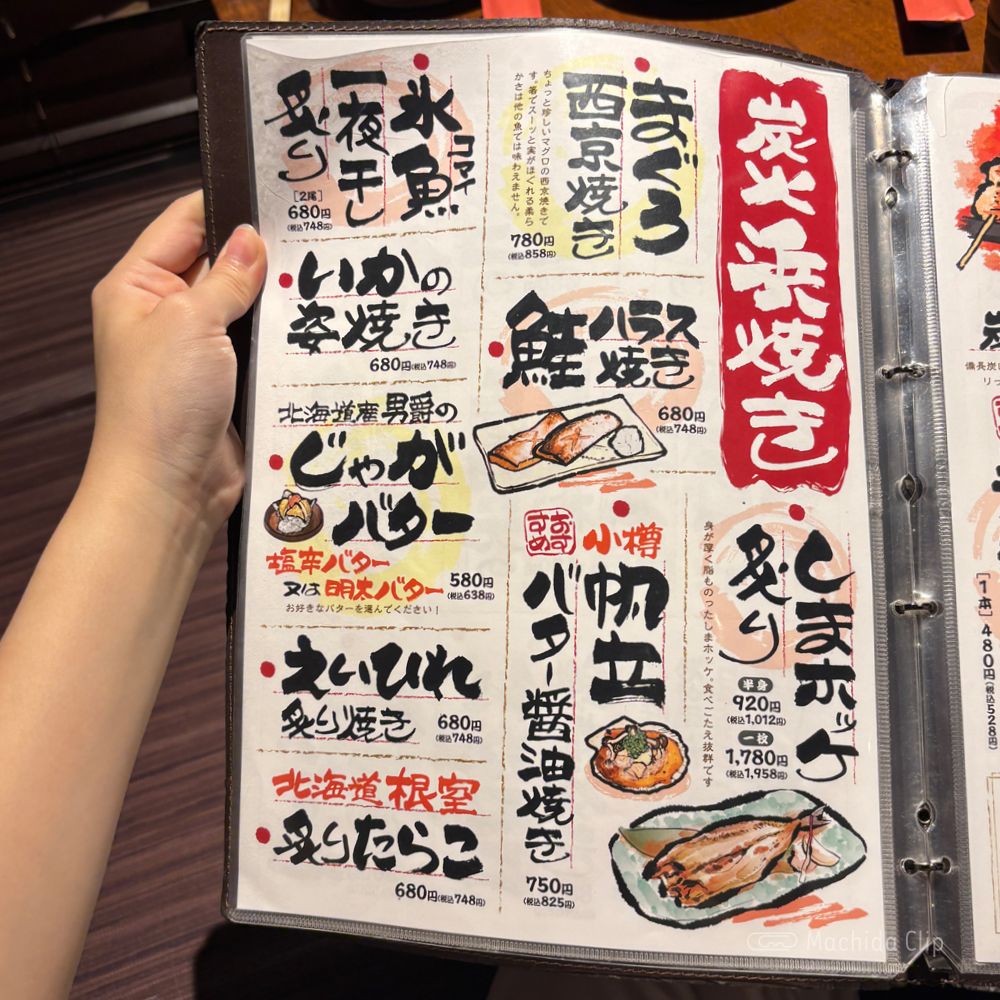 炭火浜焼き
まぐろ
西京焼き
ちょっと珍しいマグロの西京焼きで
す。箸でスーッと実がほぐれる柔ら
かさは他の魚では味わえません。
780円
(税込858円)
氷魚
コマイ
一夜干し
炙り
[2尾]
680円
(税込748円)
いかの
姿焼き
680円(税込748円)
鮭ハラス
焼き
680円
(税込748円)
北海道産男爵の
じゃが
バター
塩辛バター
又は明太バター
580円
(税込638円)
お好きなバターを選んでください！
えいひれ
炙り焼き
680円
(税込748円)
北海道根室
炙りたらこ
680円(税込748円)
しまホッケ
炙り
身が厚く脂ものったしまホッケ。食べごたえ抜群です
半身
920円
(税込1,012円)
一枚
1,780円
(税込1,958円)
おすすめ
小樽
帆立
バター醤油焼き
750円
(税込825円)
備長炭
[1本]
480円(税込528円)
Machida Clip